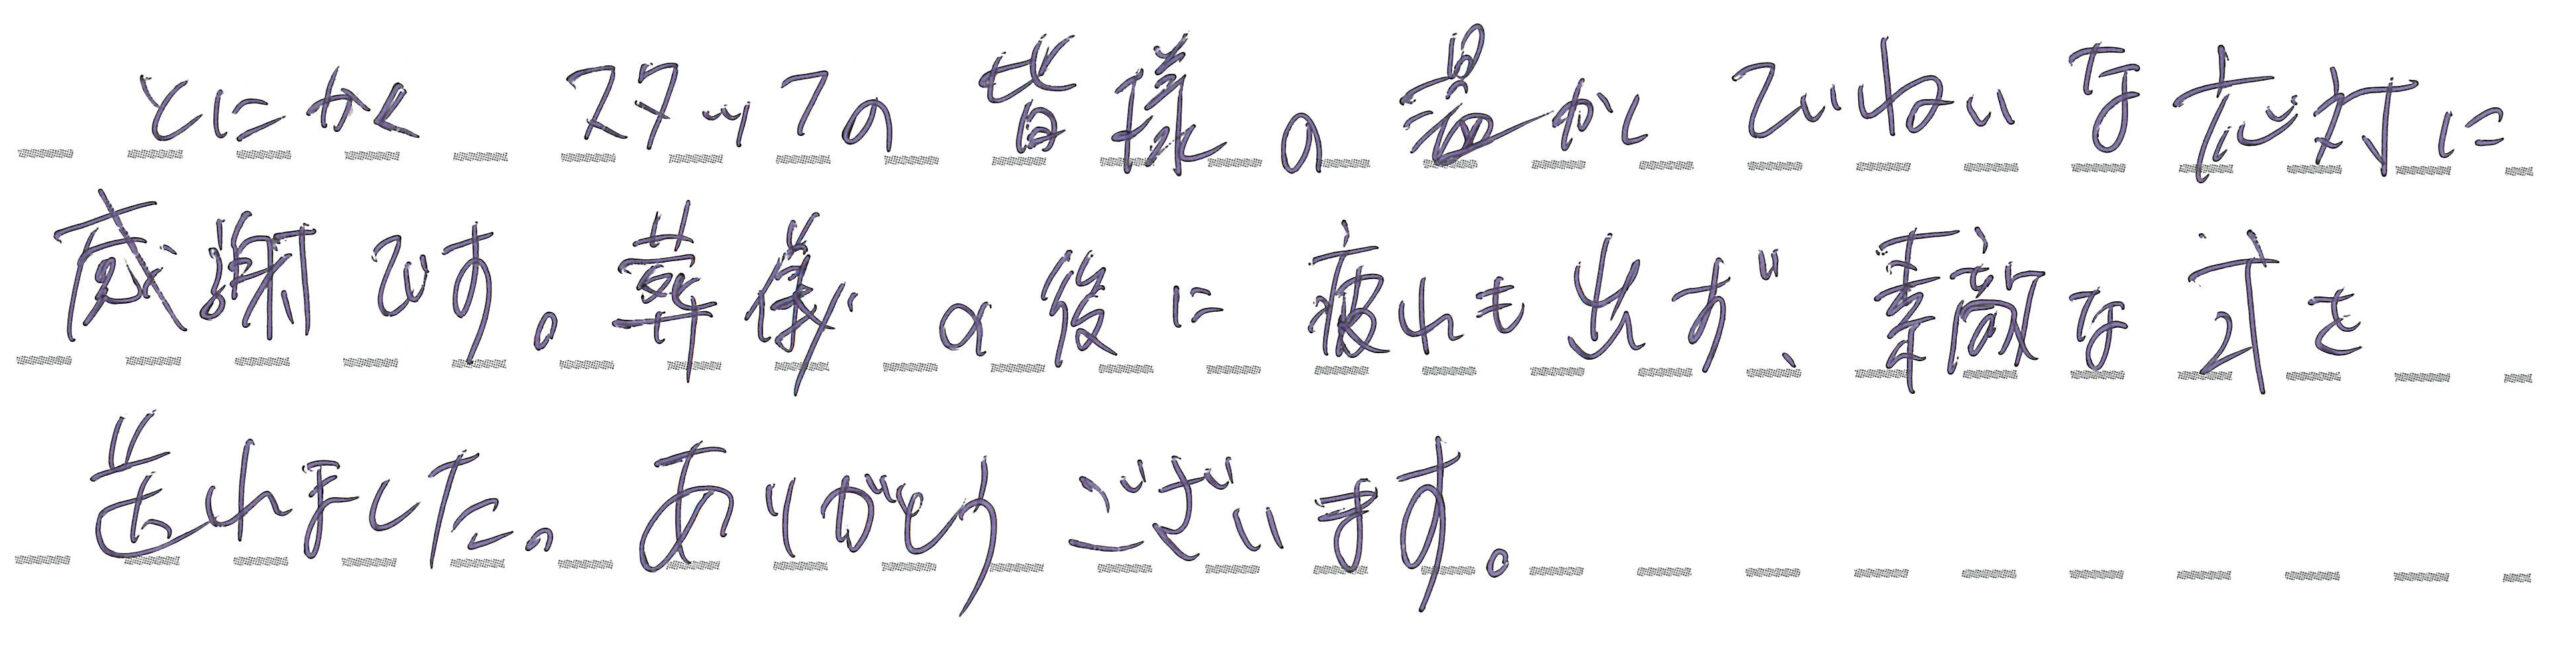 とにかく スタッフの皆様の温かくていねいな応対に
感謝です。葬儀の後に疲れも出ず、素敵な式を
送れました。ありがとうございます。